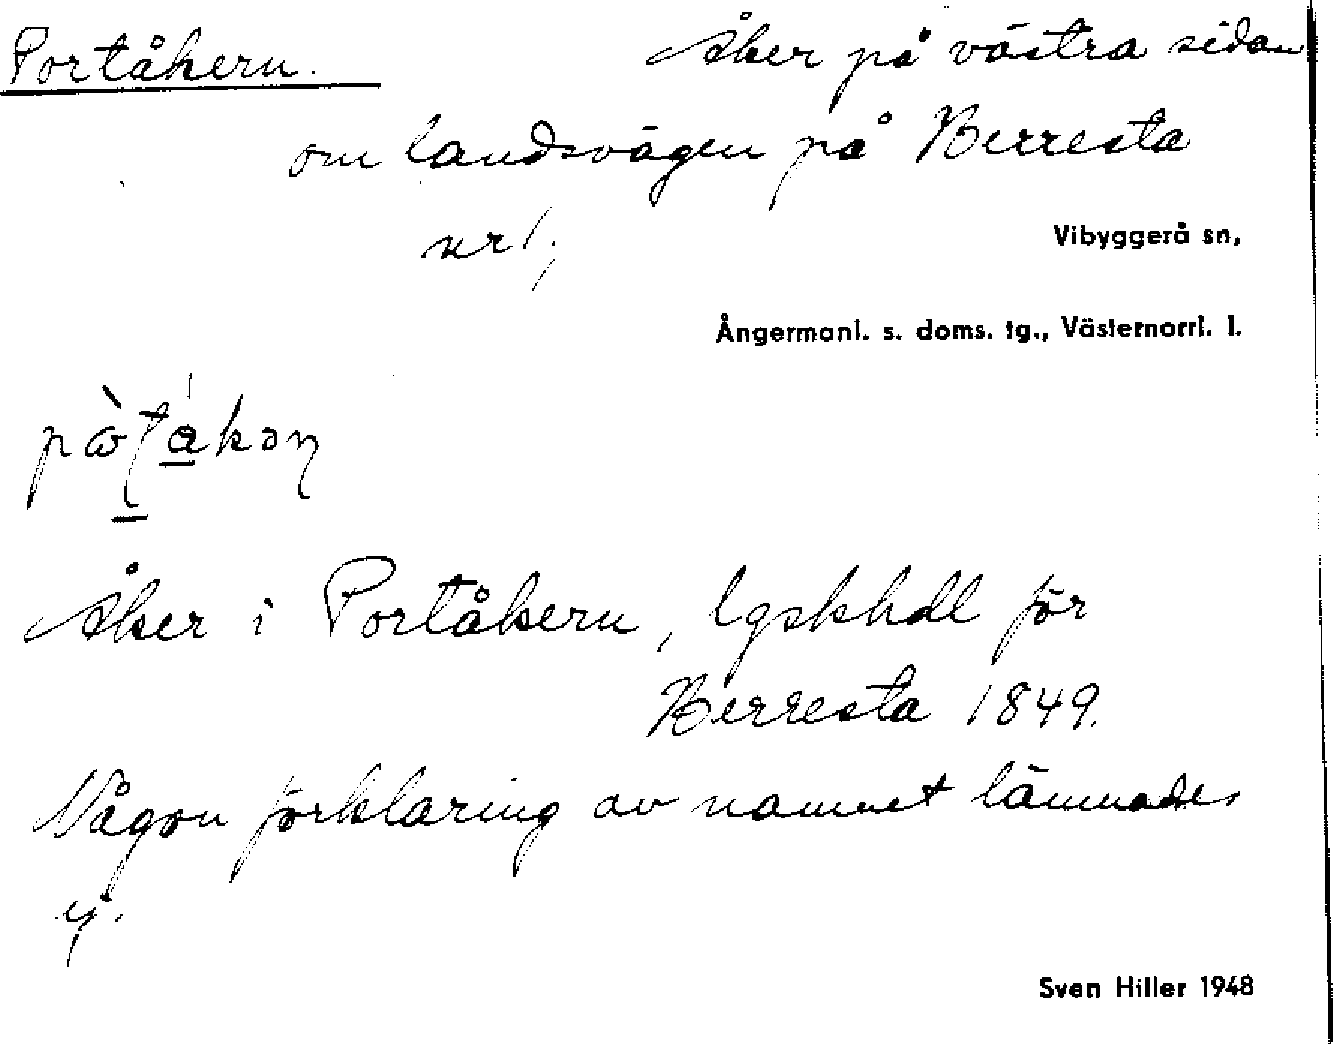 Portåkern. Åker på västra sidan
om landsvägen på Berresta
nr 1;
Vibyggerå sn,
Ångermanl. s. doms. tg., Västernorrl. l.
Åker i Portåkern, lgskhdl för
Berresta 1849.
Någon förklaring av namnet lämnades
ej.
Sven Hiller 1948